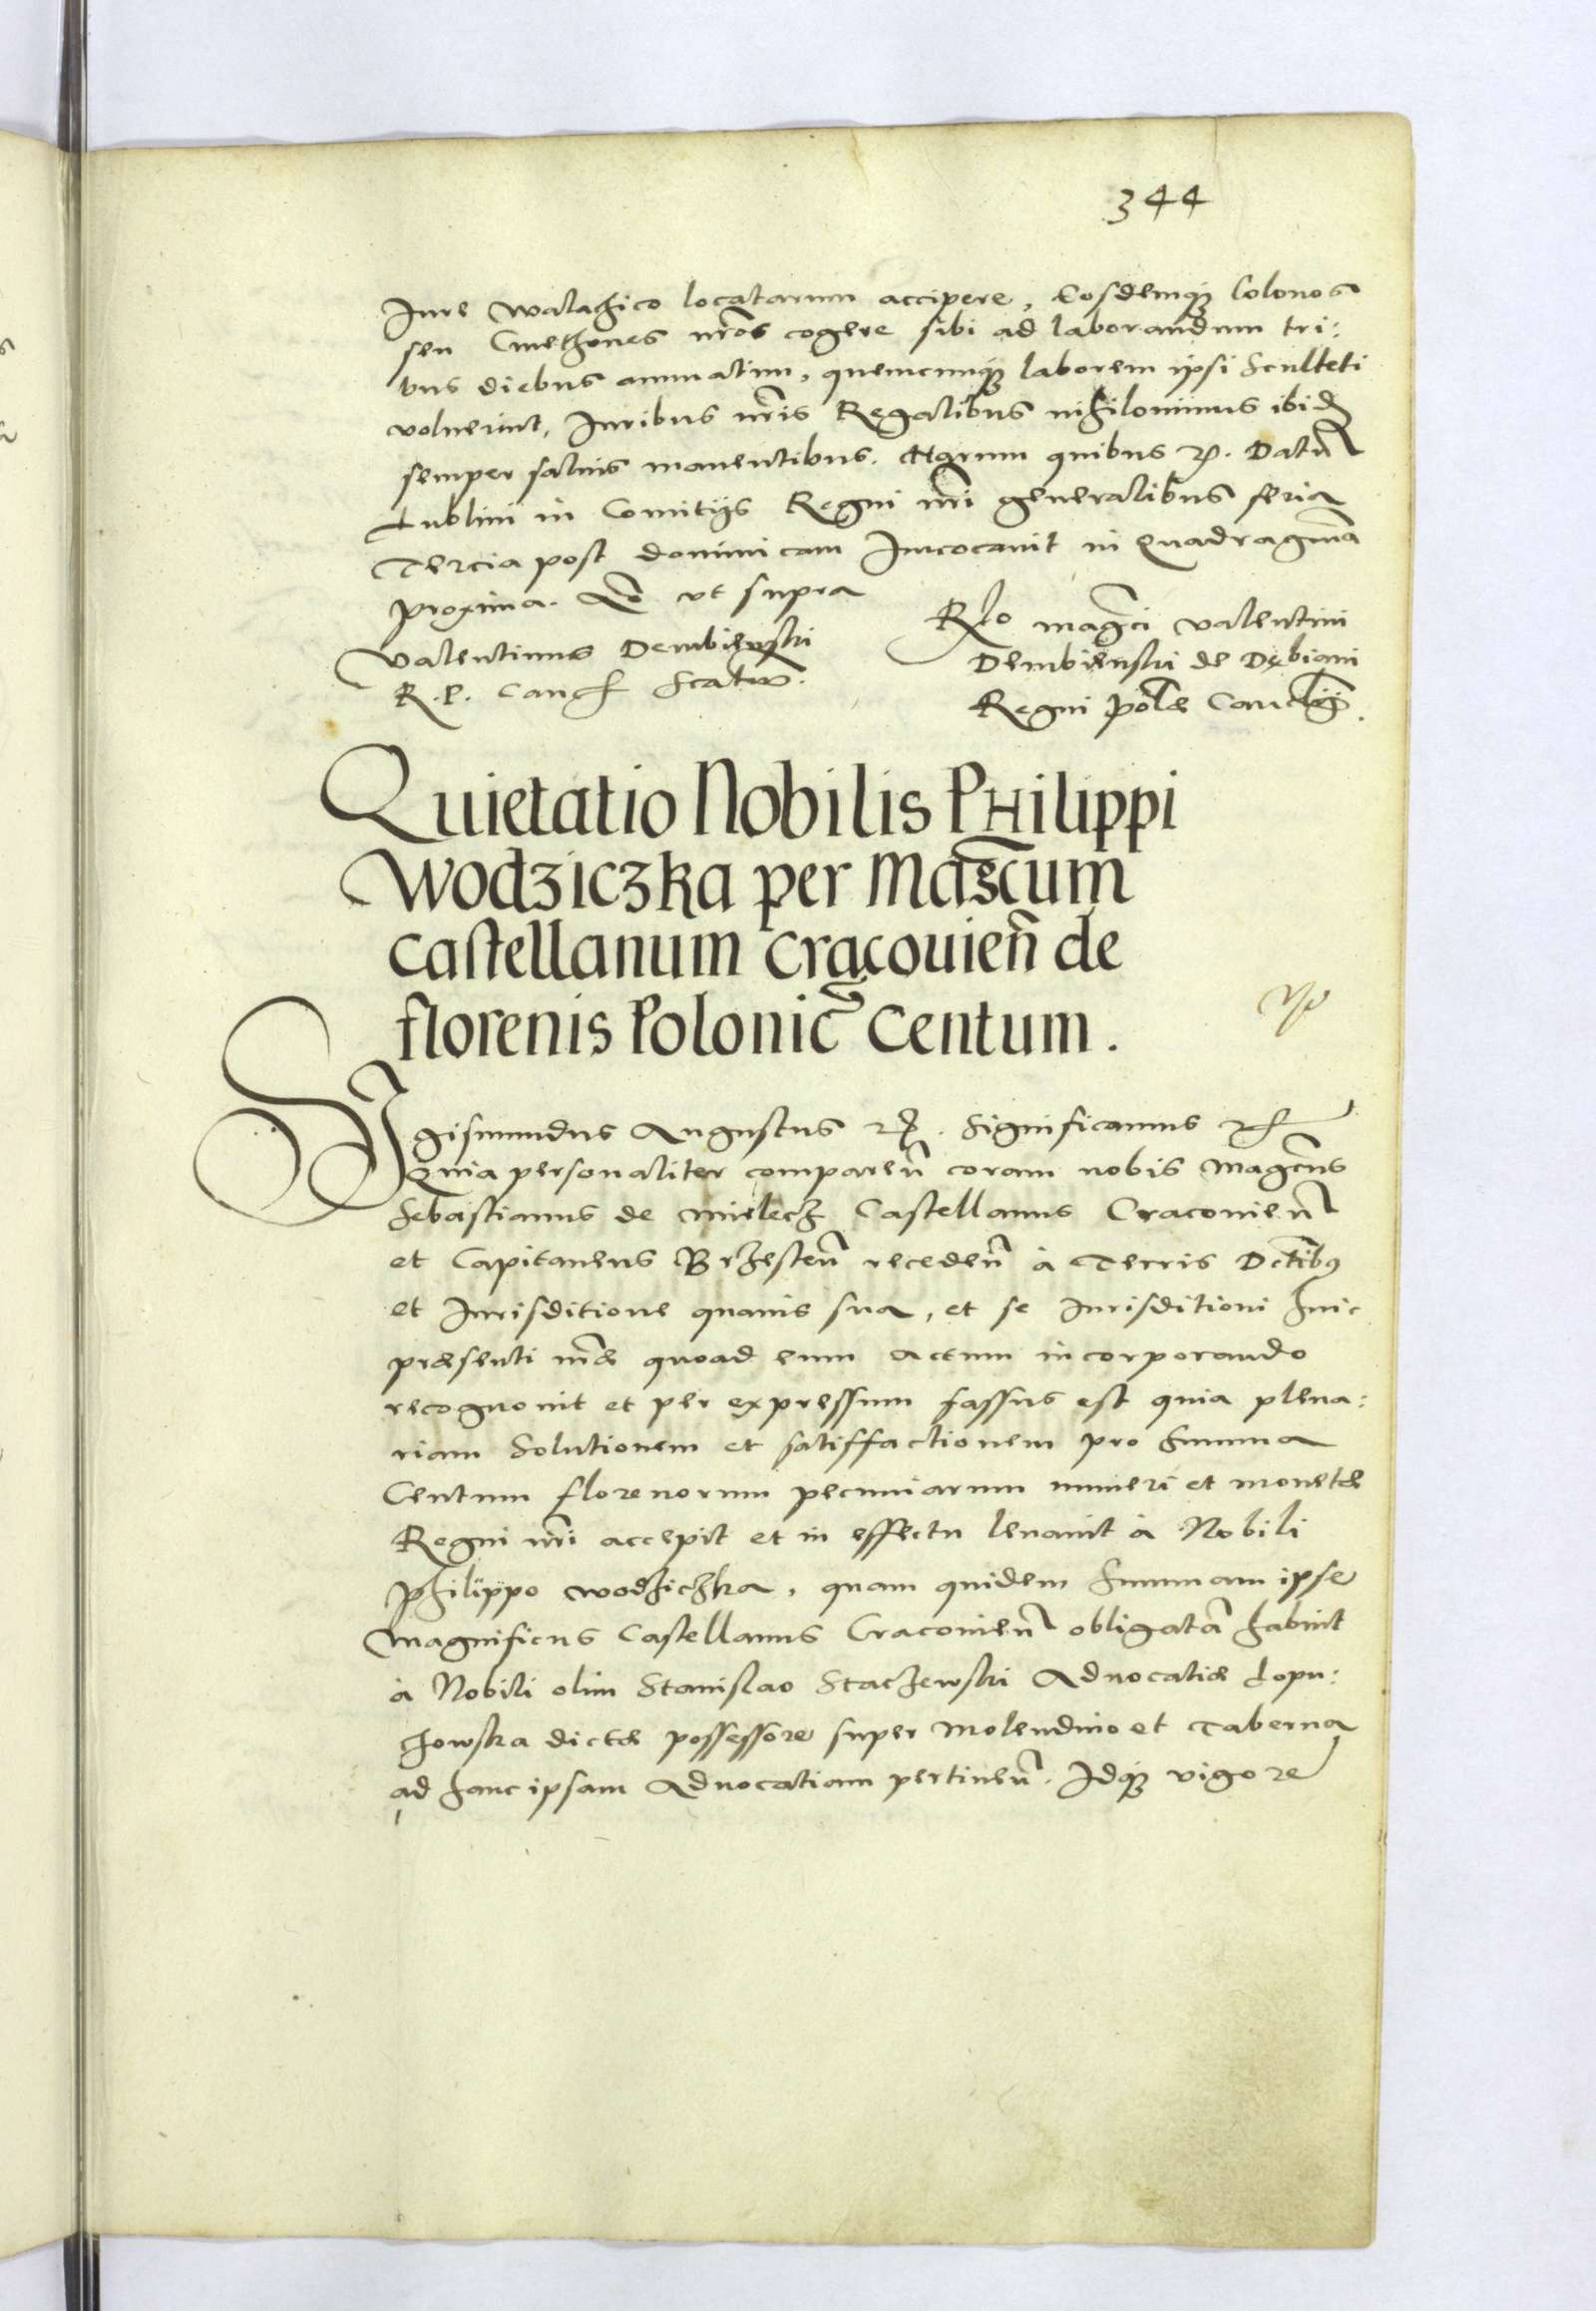 344
Jure walachico locatarum accipere, Eosdemq̃ Colonos
seu Cmethones nr̃os cogere sibi ad laborandum tri:
bus diebus annuatim, quemcunq̃ laborem ipsi Sculteti
voluerint, Juribus nr̃is Regalibus nihilominus ibid̃
semper saluis manentibus. Harum quibus etc. Datum̃
Lublini in Comitijs Regni nr̃i generalibus feria
Tercia post dominicam Inuocauit in Quadragm̃a
proxima. Ao ut supra
Valentinus Dembienski
R. P. Canc. Sc̃ator.
Rlo mag̃ci valentini
Dembienski de Dębiani
Regni Pol̃æ Cancel̃rij.
Quietatio Nobilis Philippi
Wodziczka per Mag̃cum
castellanum cracouien̄ de
florenis Polonic̃ centum.
Sigismundus Augustus etc. Significamus etc
Quia personaliter comparen̄ coram nobis Magc̃us
Sebastianus de Mielecz Castellanus Cracouien̄
et Capitaneus Brzesten̄ receden̄ à Terris Dct̃ibus
et Jurisditione quauis sua, et se Jurisditioni huic
præsenti nr̃æ quoad eum actum incorporando
recognouit et per expressum fassus est quia plena:
riam Solutionem et satisfactionem pro summa
Centum florenorum pecuniarum numeri et monetæ
Regni nr̃i accepit et in effectu leuauit à Nobili
Philippo wodzichka, quam quidem summam ipse
Magnificus Castellanus Cracouien̄ obligatã habuit
à Nobili olim Stanislao Staczewski Aduocatiæ Lopu:
chowska dictæ possessore super Molendino et Taberna
ad hanc ipsam Aduocatiam pertinen̄. Idq̃ vigore